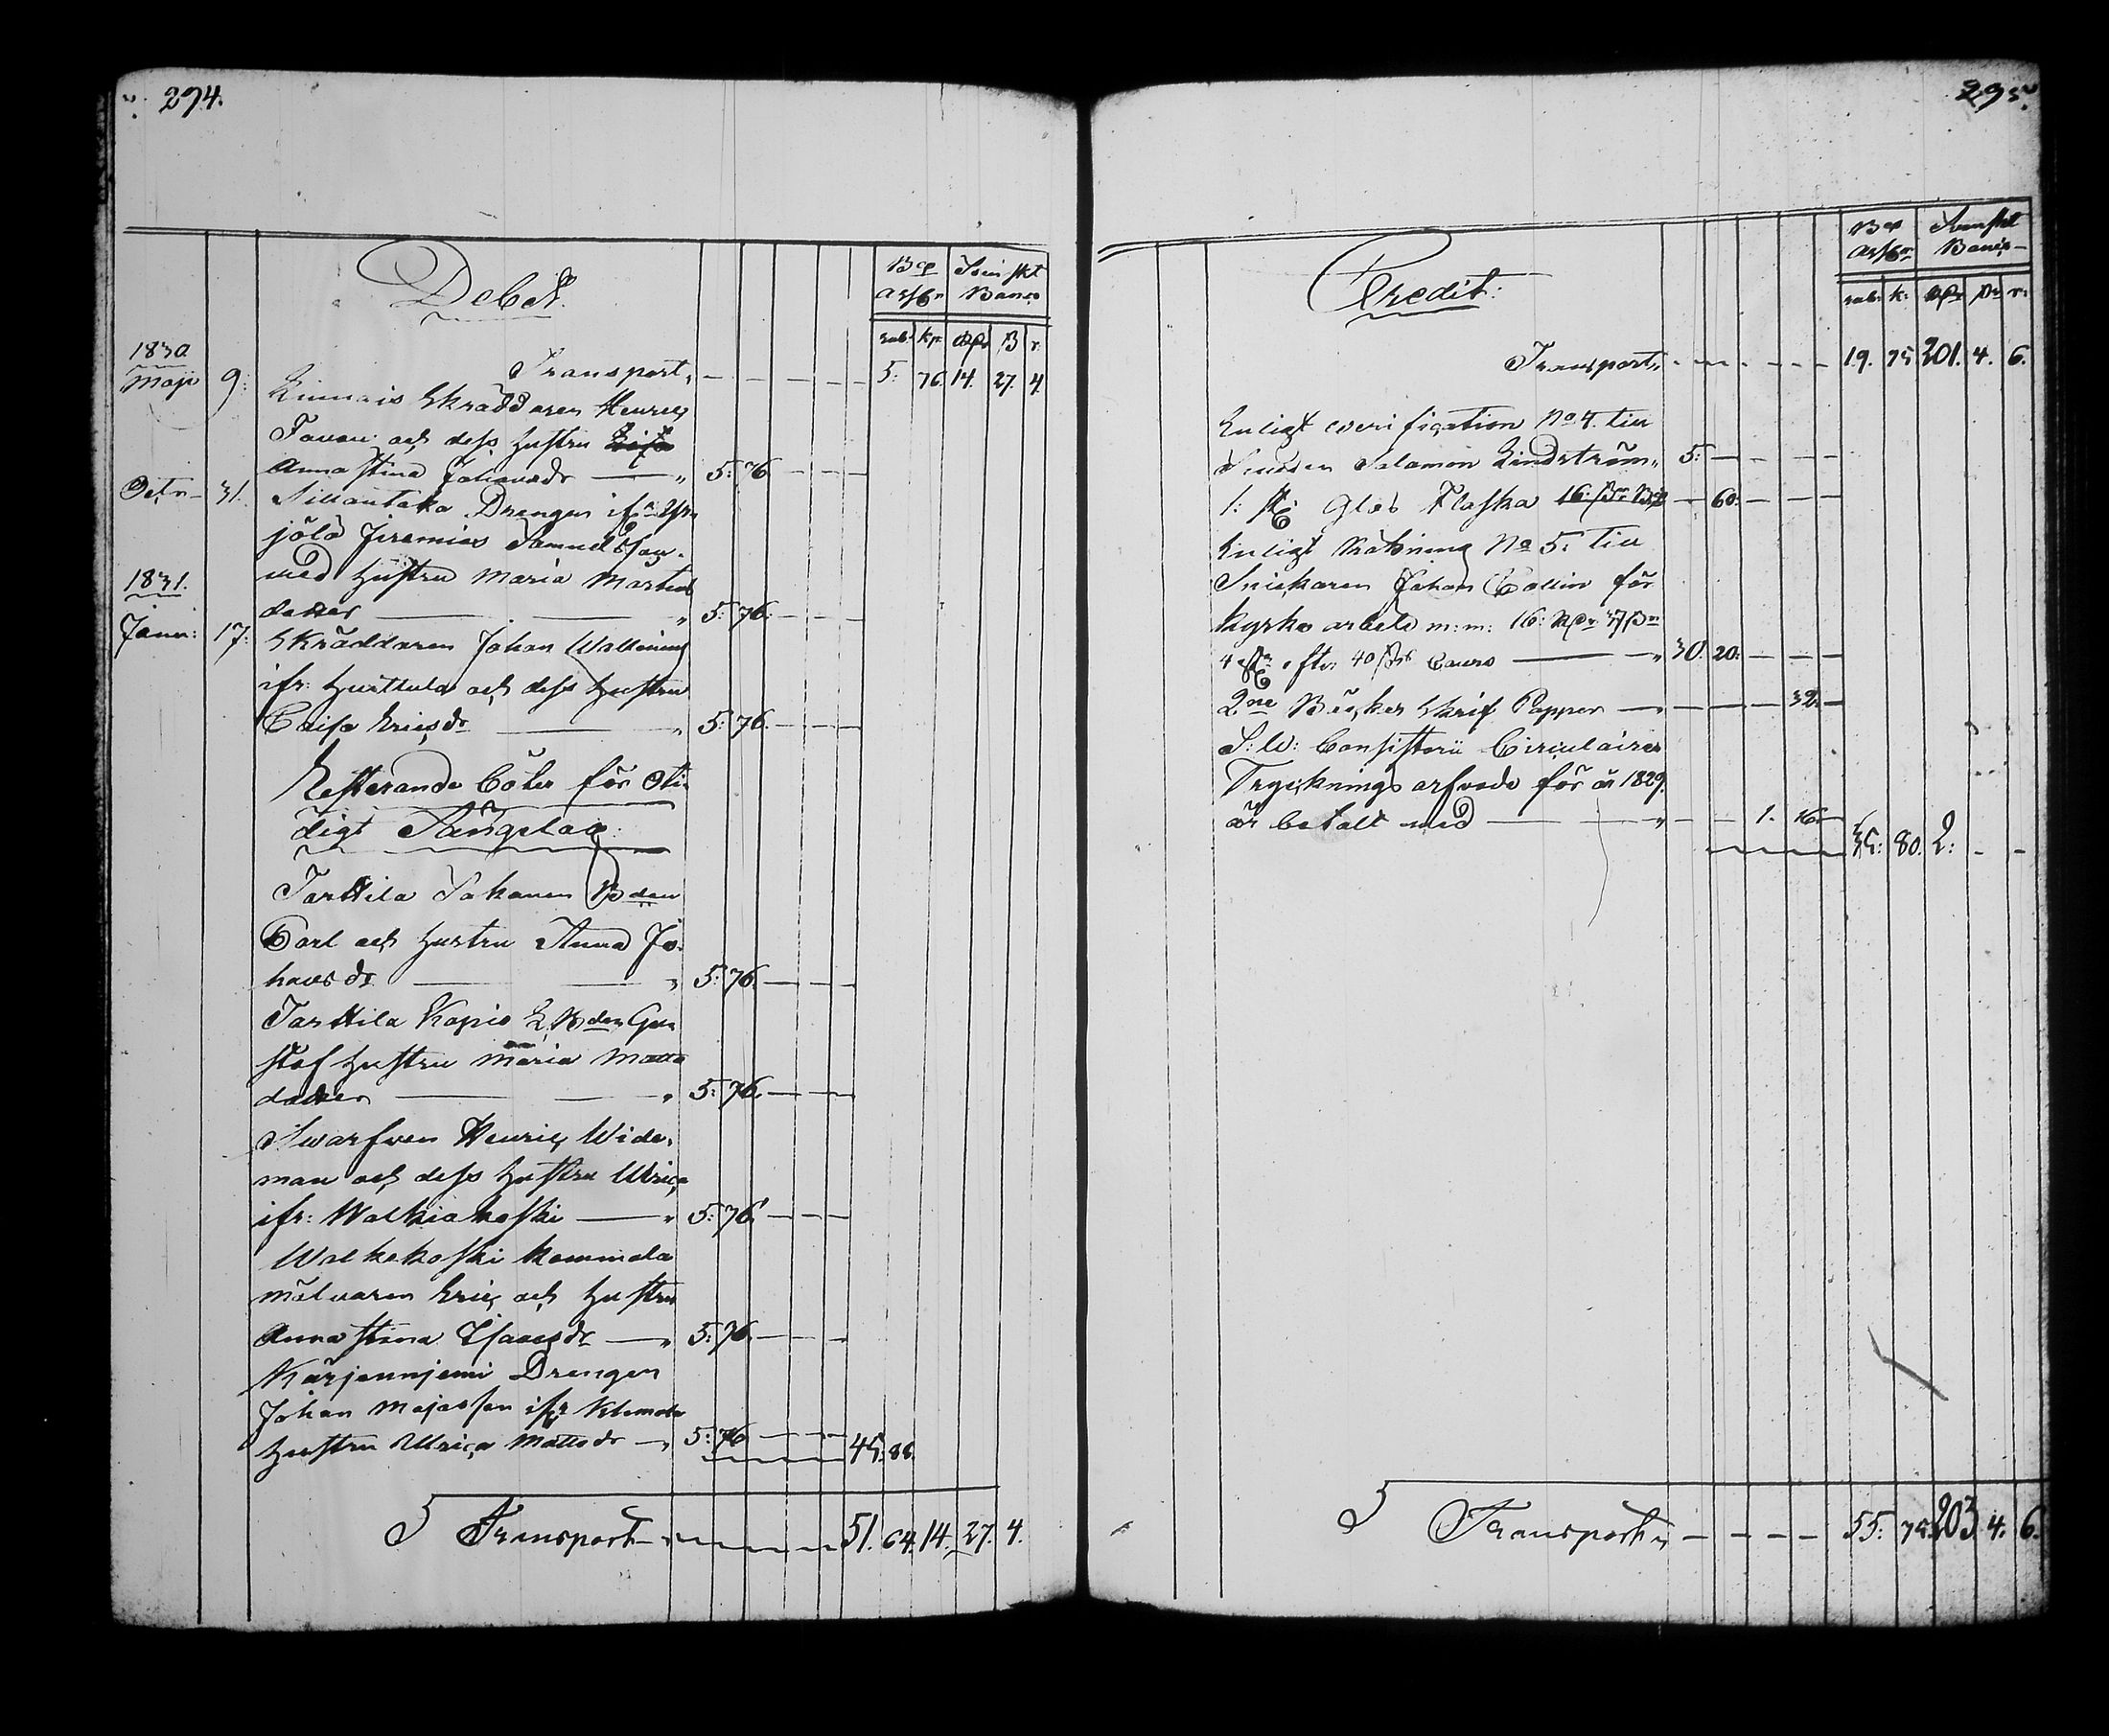 274.
Debet.
Bco Assg:r Svenskt Banco
rub: kp: Rdr ß r:
1830
Maji 9: Transport, 5: 76. 14. 27. 4.
Skräddaren Henric
och dess hustru
Anna Stina Johansdr 5: 76
Octr 31. Drengen ifr
Jeremias Samuelsson
med hustru Maria Martins
dotter 5: 76.
1831.
Janu: 17: Skräddaren Johan
ifr: Huittula och dess hustru
Caisa Ericsdr 5: 76.
Resterande böter för Oti-
digt Sängelag.
Tarttila Sakanen Bden
Carl och hustru Anna Jo-
hansdr 5: 76.
Tarttila Kapio Bden Gu-
staf hustru Maria Matts
dotter 5: 76.
Swarfven Henric Wide-
man och dess hustru Ulrica
ifr: Walkiakoski 5: 76
Walkekoski
mölnaren Eric och hustru
Anna Stina Isacsdr 5: 76.
Kärjenniemi Drengen
Johan ifr
hustru Ulrica Mattsdr 5: 76 45: 88.
Transport 51. 64. 14. 27. 4.
295.
Credit:
Bco Assgr Svenskt Banco
rub: k: Rdr ßr r:
Transport, 19. 75 201. 4. 6.
Enligt verification No 4. till
Salamon Lindström, 5:
1: st Glas Flaska 60:
Enligt Räkning No 5. till
Snickaren Johan Collin för
kyrko arbete m: m: 16: Rdr
efter 40 ßr 30. 20:
2ne Böcker Skrif Papper 32.
S: W: Consistorii Circulairer
Trycknings arfvode för år 1829.
är betalt med 1. 16.
35: 80. 2:
Transport 55: 75. 203 4. 6.